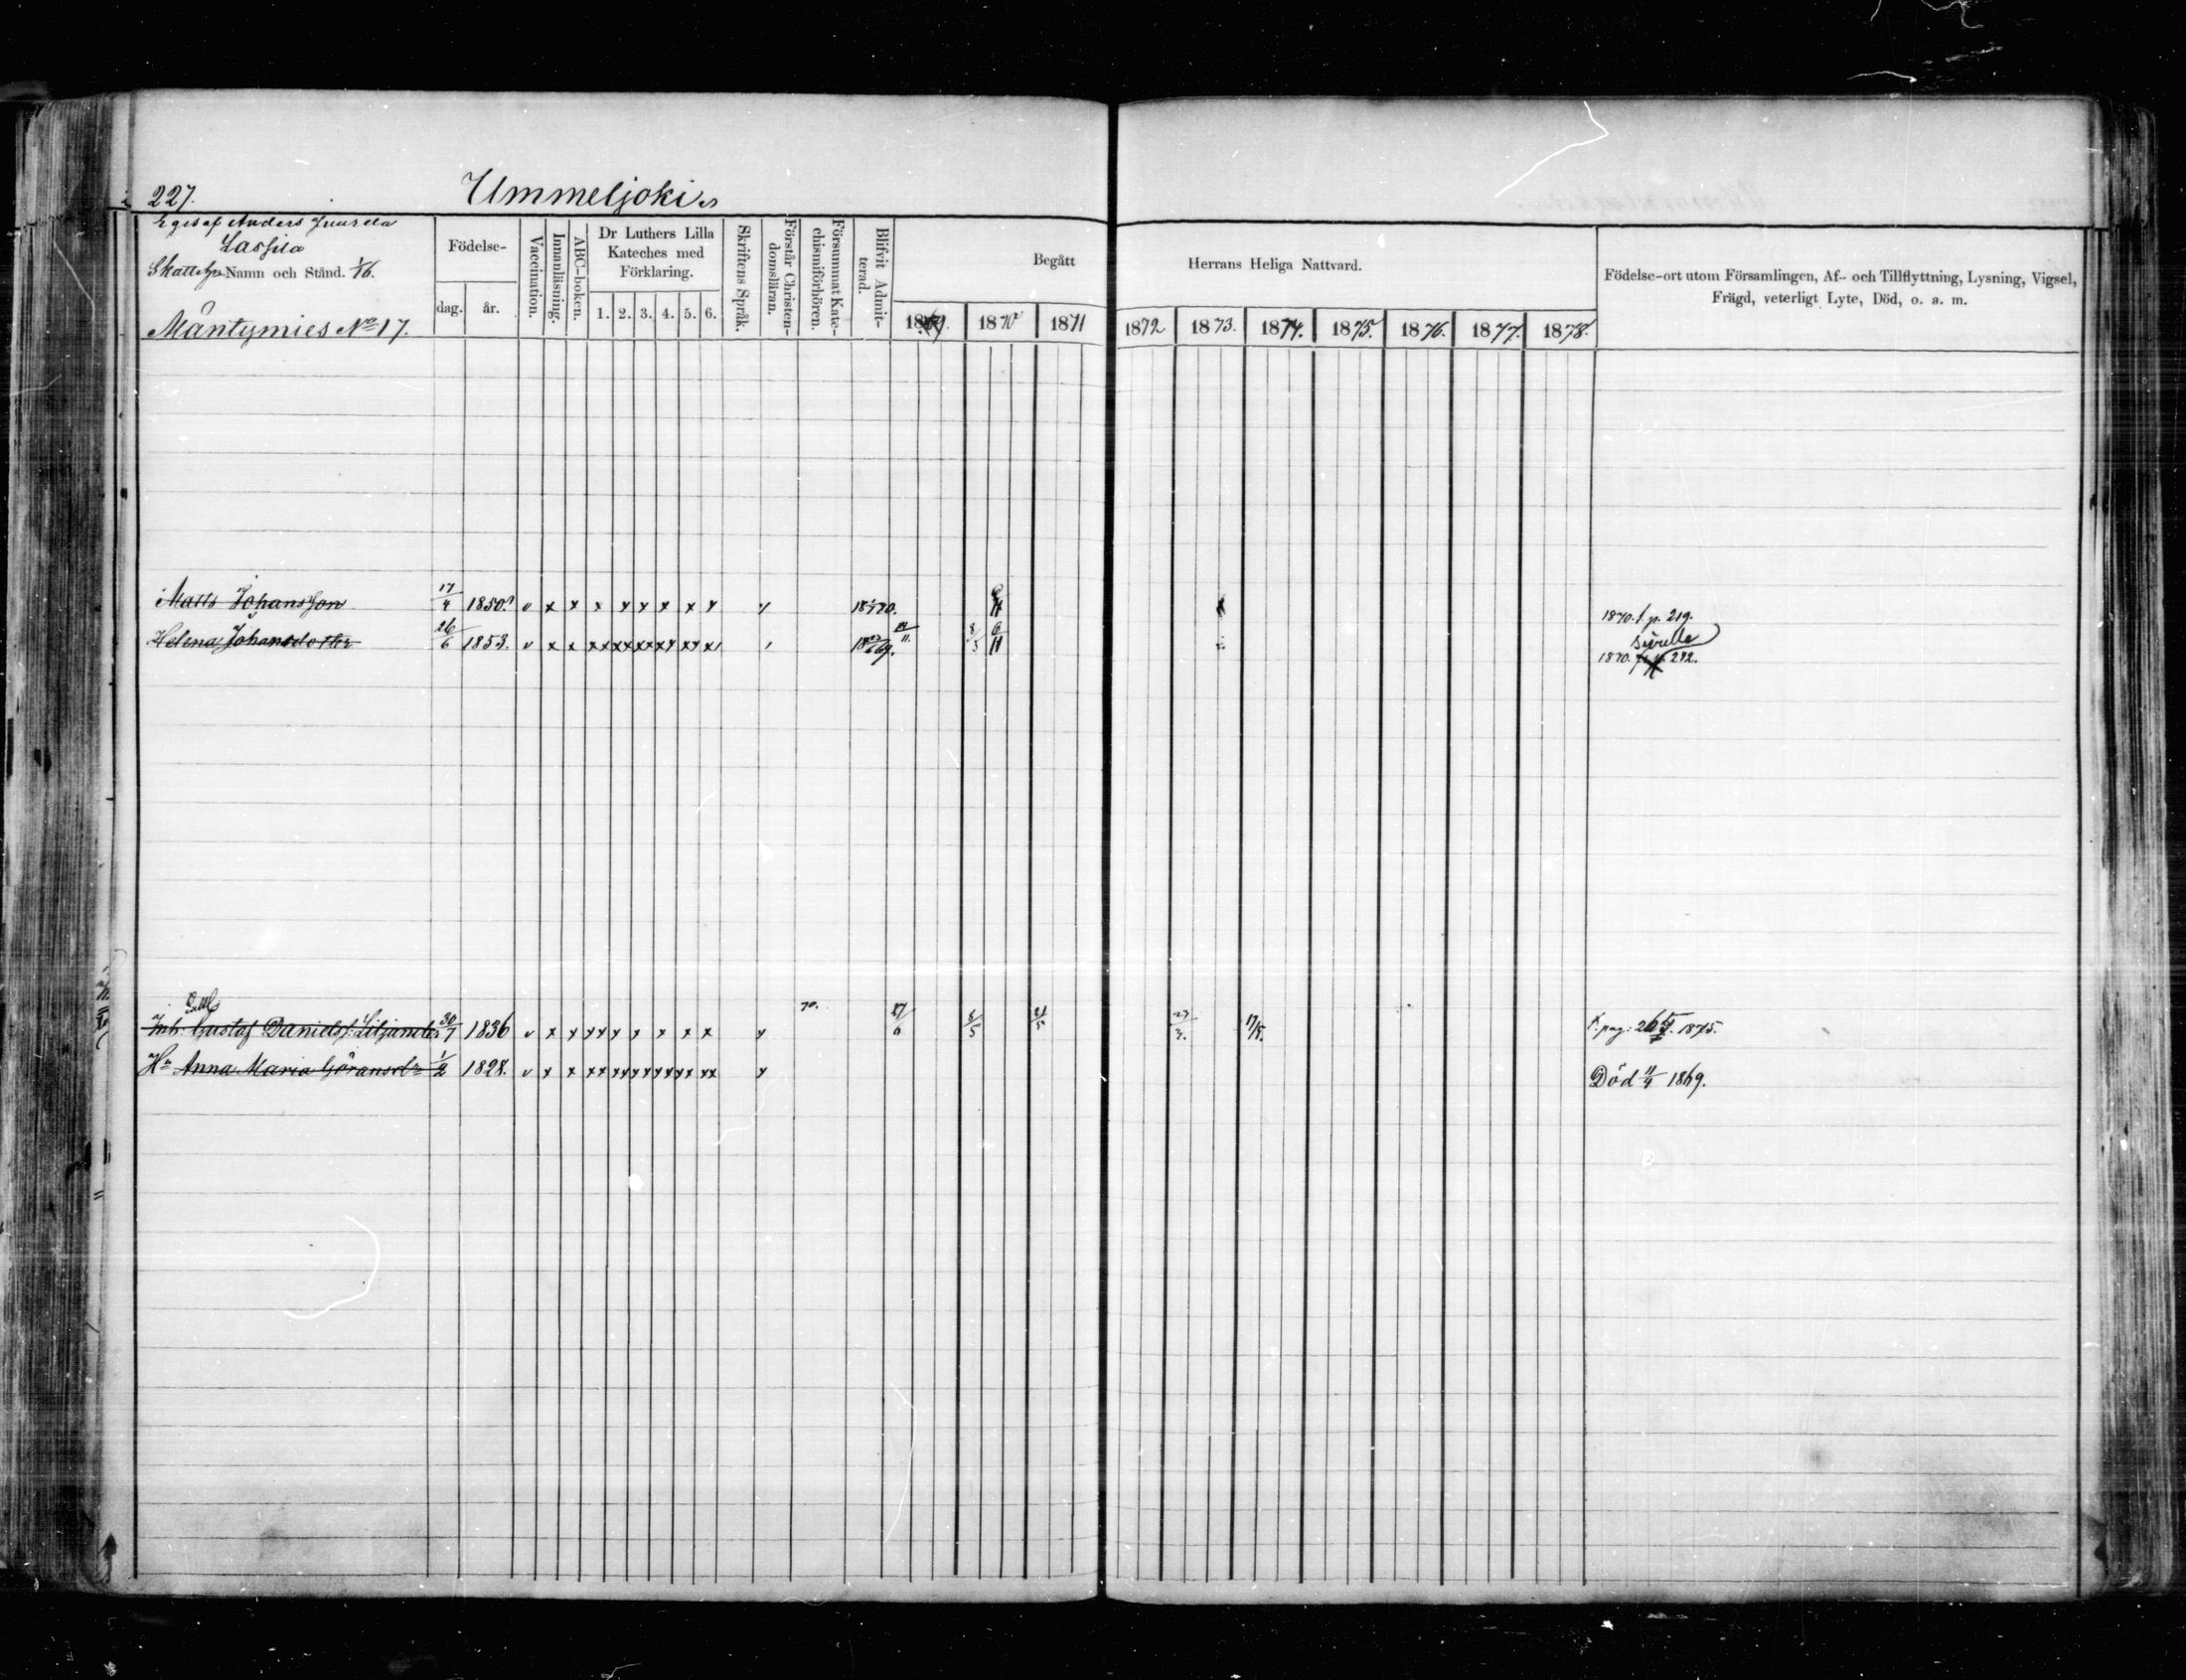 227. Ummeljoki
Eges af Anders Juurela
Lassila
Skatte Namn och Stånd. 1/16.
Mäntymies No 17.
Födelse-
dag. år.
Vaccination.
Innanläsning.
ABC-boken.
Dr Luthers Lilla
Kateches med
Förklaring.
1. 2. 3. 4. 5. 6.
Skriftens Språk.
Förstår Christen-
domsläran.
Försummat Kate-
chismiförhören.
Blifvit Admit-
terad.
Begått Herrans Heliga Nattvard.
1869. 1870 1871 1872 1873. 1874. 1875. 1876. 1877. 1878.
Födelse-ort utom Församlingen, Af- och Tillflyttning, Lysning, Vigsel,
Frägd, veterligt Lyte, Död, o. a. m.
Matts Johansson 17/4 1850. v x x x x x x x x 1870. 1870. f. p. 219.
Helena Johansdotter 26/6 1853. v x x xx xx xx xx xx x 1869. 8/5 6/11
sivulle
1870. 292.
Inh. Gustaf Daniels. Liljander 30/7 1836 v x x xx x x x x x 70. 17/6 8/5 21/5 23/3. 17/5. 1875.
Hu Anna Maria Göransdr 1/2 1828. v x x xx xx xx xx xx xx Död 11/4 1869.